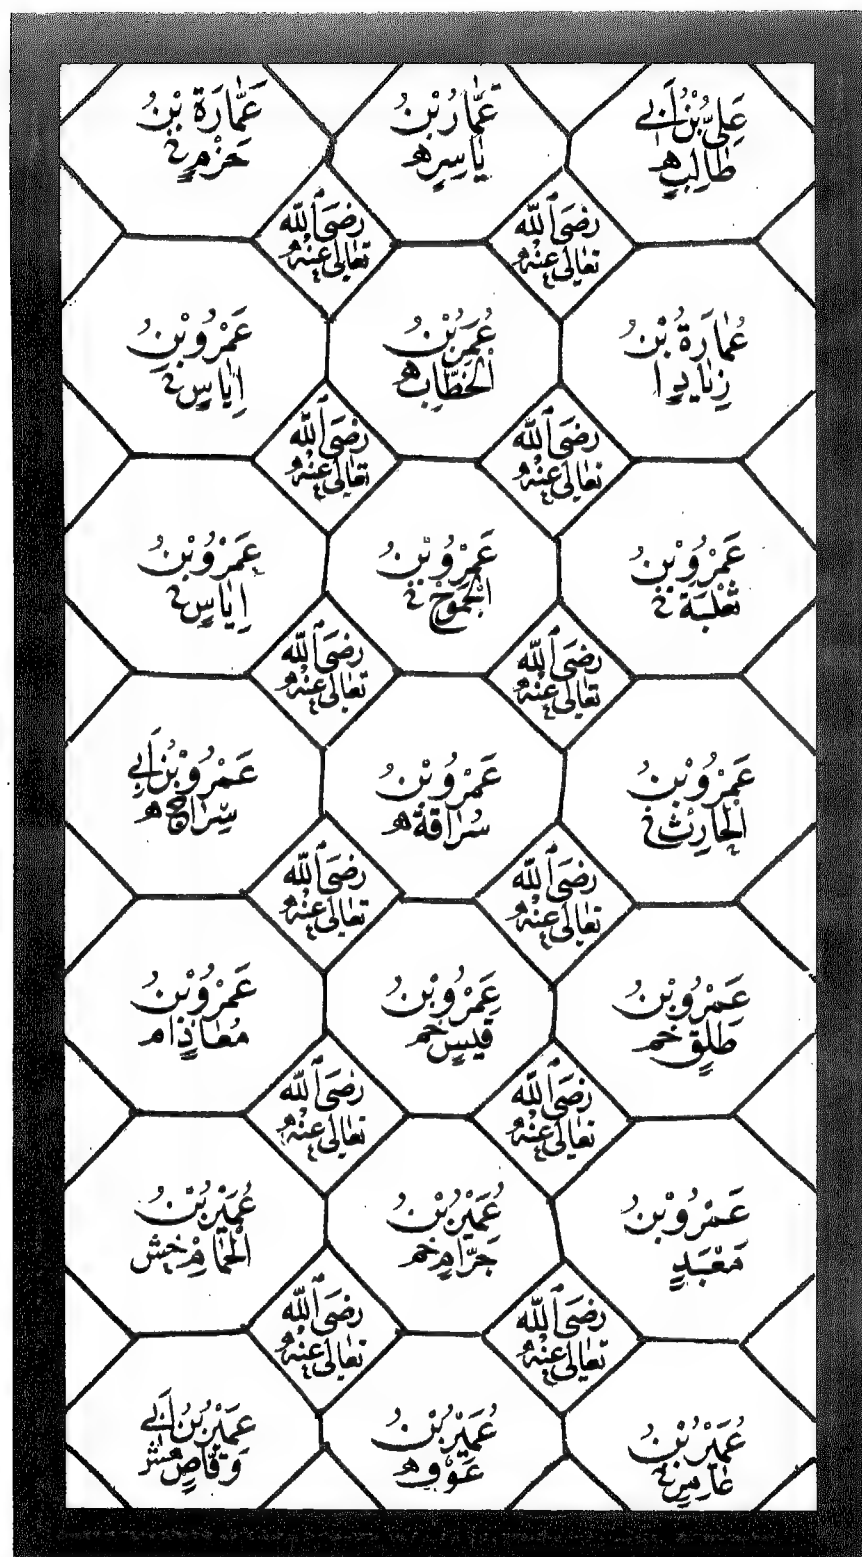 عَلِيُّ بْنُ أَبِي
طَالِبٍ ه
عَمَّارُ بْنُ
يَاسِرٍ ه
عَمَّارَةُ بْنُ
حَزْمٍ خ
رَضِىَ اللّٰه
تَعَالٰى عَنْهُ
رَضِىَ اللّٰه
تَعَالٰى عَنْهُ
عُمَارَةُ بْنُ
زِيَادٍ ا
عُمَرُ بْنُ
الْخَطَّابِ ه
عَمْرُو بْنُ
اِيَاسٍ خ
رَضِىَ اللّٰه
تَعَالٰى عَنْهُ
رَضِىَ اللّٰه
تَعَالٰى عَنْهُ
عَمْرُو بْنُ
ثَعْلَبَةَ خ
عَمْرُو بْنُ
الْجَمُوحِ خ
عَمْرُو بْنُ
اِيَاسٍ خ
رَضِىَ اللّٰه
تَعَالٰى عَنْهُ
رَضِىَ اللّٰه
تَعَالٰى عَنْهُ
عَمْرُو بْنُ
الْحَارِثِ خ
عَمْرُو بْنُ
سُرَاقَةَ ه
عَمْرُو بْنُ أَبِي
سِرَاجٍ ه
رَضِىَ اللّٰه
تَعَالٰى عَنْهُ
رَضِىَ اللّٰه
تَعَالٰى عَنْهُ
عَمْرُو بْنُ
طَلِقٍ خم
عَمْرُو بْنُ
قَيْسٍ خم
عَمْرُو بْنُ
مُعَاذٍ ام
رَضِىَ اللّٰه
تَعَالٰى عَنْهُ
رَضِىَ اللّٰه
تَعَالٰى عَنْهُ
عَمْرُو بْنُ
مَعْبَدٍ
عُمَيْرُ بْنُ
حَرَامٍ خم
عُمَيْرُ بْنُ
الْحُمَامِ خش
رَضِىَ اللّٰه
تَعَالٰى عَنْهُ
رَضِىَ اللّٰه
تَعَالٰى عَنْهُ
عُمَيْرُ بْنُ
عَامِرٍ خ
عُمَيْرُ بْنُ
عَوْفٍ ه
عُمَيْرُ بْنُ أَبِي
وَقَّاصٍ هش